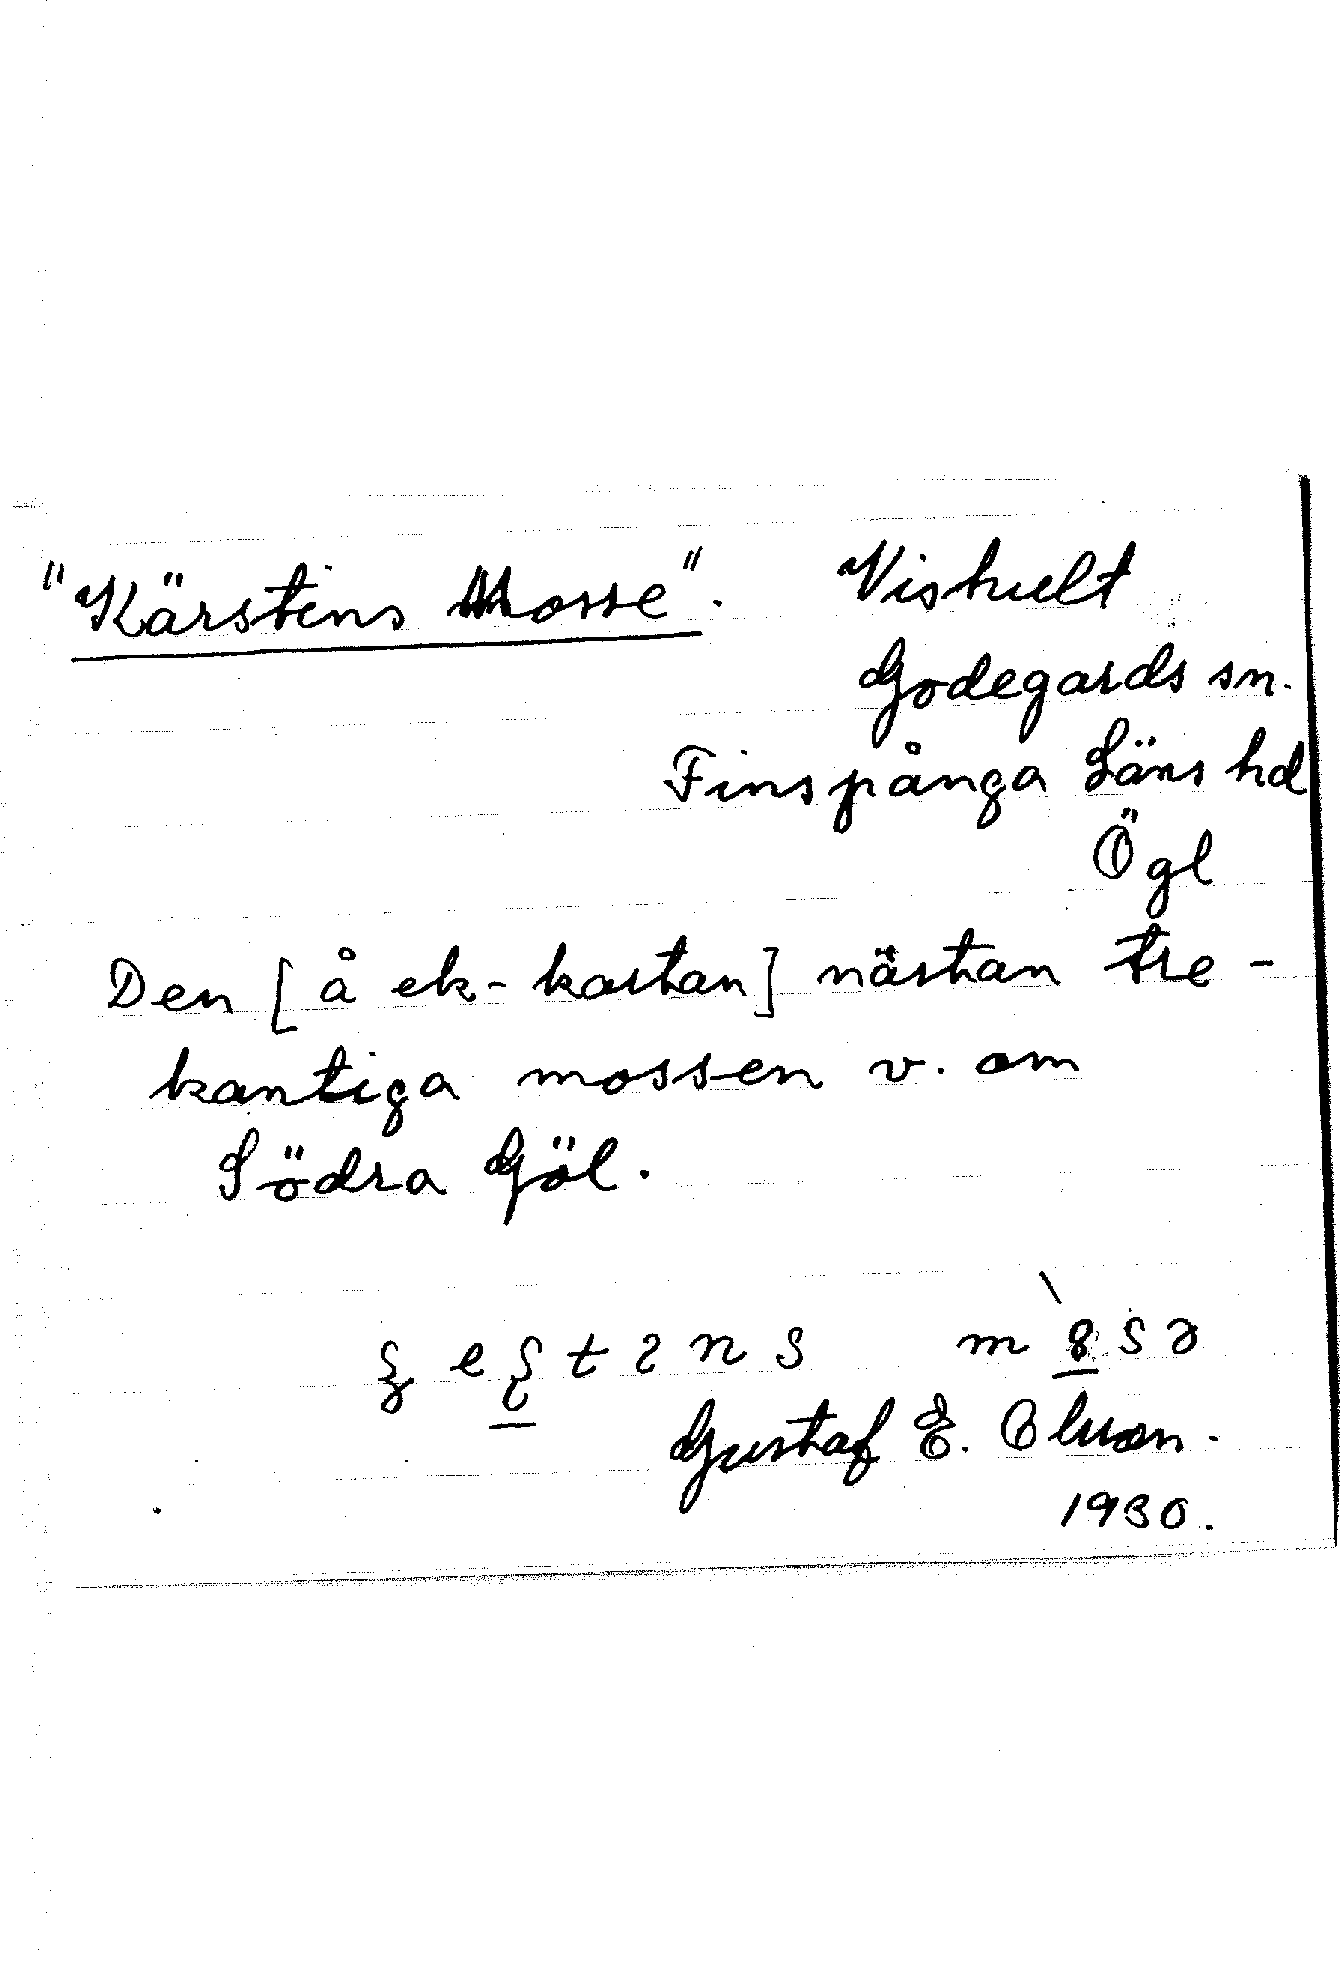 "Kärstens Mosse". Vishult
Godegards sn.
Finspånga Läns hd
Ögl
Den [å ek-kartan] nästan tre-
kantiga mossen v. om
Södra Göl.
Gustaf E.
1930.